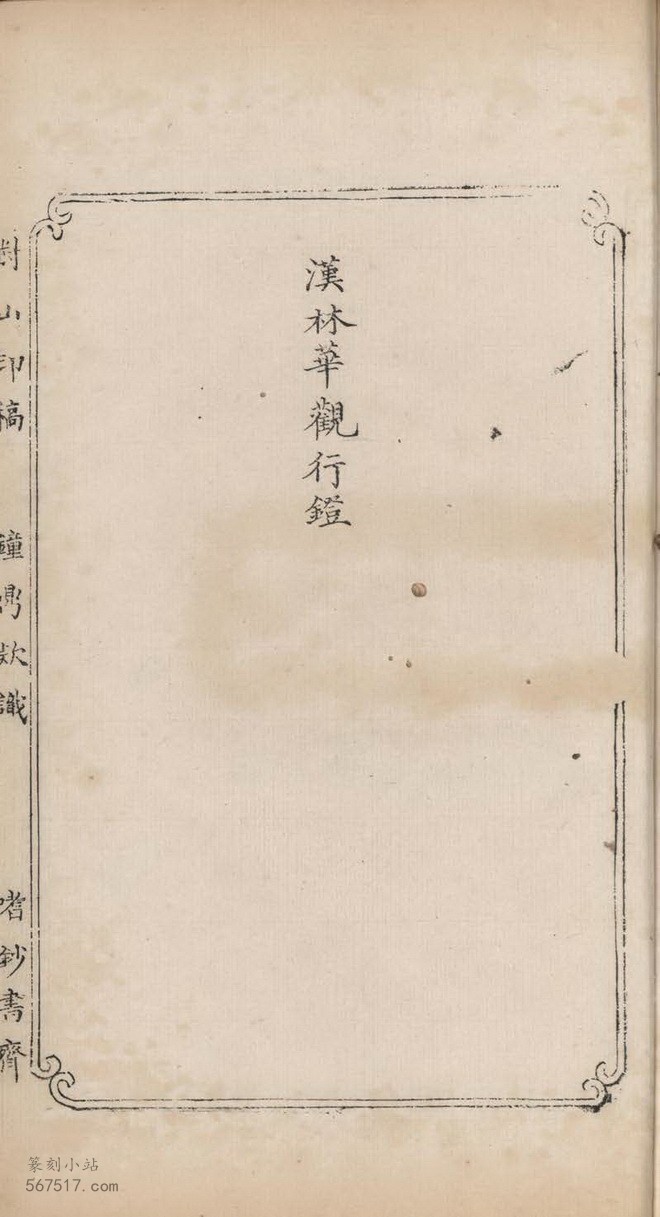 漢林華觀行鐙
對山印稿 鐘鼎款識 嗜鈔書齋
篆刻小站
567517.com